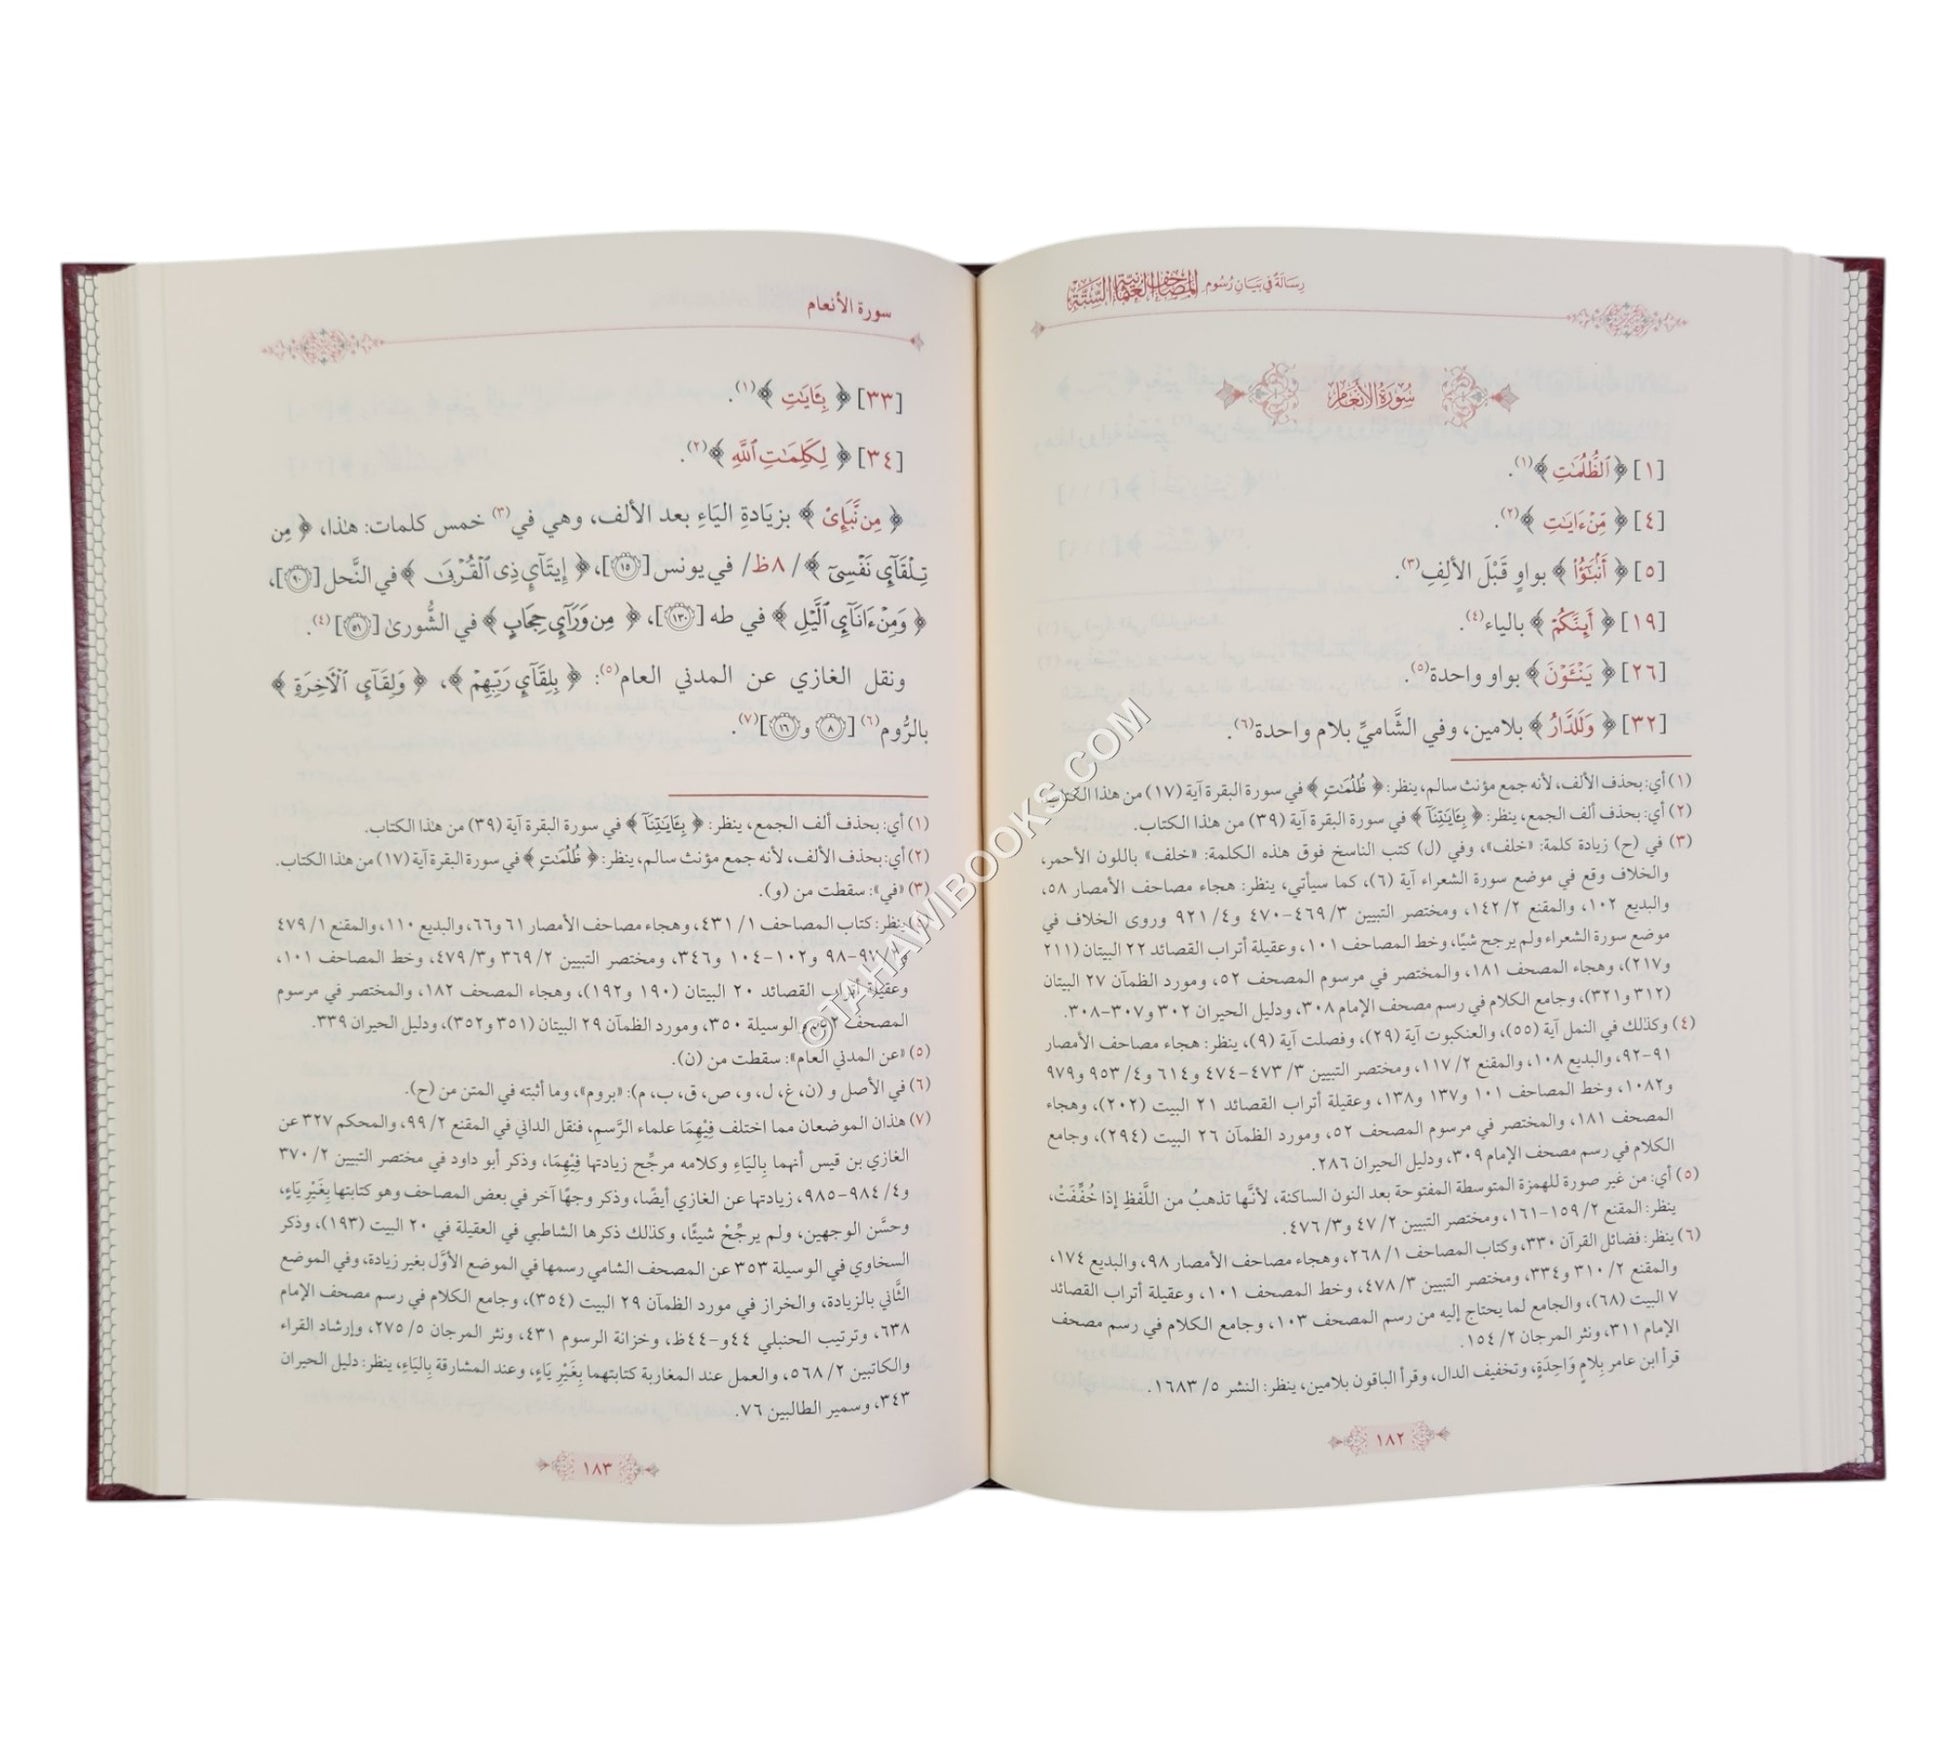 رِسَالَةٌ فِي بَيَانِ رُسُومِ المصَاحِفِ العُثمَانِيَّةِ السِّتَّةِ
سُورَةُ الأَنعَامِ
[١] ﴿ ٱلظُّلُمَٰتِ ﴾(١).
[٤] ﴿ مِّنۡ ءَايَٰتِ ﴾(٢).
[٥] ﴿ أَنۢبَٰٓؤُاْ ﴾ بواوٍ قَبْلَ الألِفِ(٣).
[١٩] ﴿ أَئِنَّكُمۡ ﴾ بالياء(٤).
[٢٦] ﴿ يَنۡـَٔوۡنَ ﴾ بواو واحدة(٥).
[٣٢] ﴿ وَلَلدَّارُ ﴾ بلامين، وفي الشَّاميِّ بلام واحدة(٦).
(١) أي: بحذف الألف، لأنه جمع مؤنث سالم، ينظر: ﴿ ظُلُمَٰتٖ ﴾ في سورة البقرة آية (١٧) من هذا الكتاب.
(٢) أي: بحذف ألف الجمع، ينظر: ﴿ بِـَٔايَٰتِنَآ ﴾ في سورة البقرة آية (٣٩) من هذا الكتاب.
(٣) في (ح) زيادة كلمة: «خلف»، وفي (ل) كتب الناسخ فوق هذه الكلمة: «خلف» باللون الأحمر،
والخلاف وقع في موضع سورة الشعراء آية (٦)، كما سيأتي، ينظر: هجاء مصاحف الأمصار ٥٨،
والبديع ١٠٢، والمقنع ٢/ ١٤٢، ومختصر التبيين ٣/ ٤٦٩-٤٧٠ و٤/ ٩٢١ وروى الخلاف في
موضع سورة الشعراء ولم يرجح شيًا، وخط المصاحف ١٠١، وعقيلة أتراب القصائد ٢٢ البيتان (٢١١
و٢١٧)، وهجاء المصحف ١٨١، والمختصر في مرسوم المصحف ٥٢، ومورد الظمآن ٢٧ البيتان
(٣١٢ و٣٢١)، وجامع الكلام في رسم مصحف الإمام ٣٠٨، ودليل الحيران ٣٠٢ و٣٠٧-٣٠٨.
(٤) وكذلك في النمل آية (٥٥)، والعنكبوت آية (٢٩)، وفصلت آية (٩)، ينظر: هجاء مصاحف الأمصار
٩١-٩٢، والبديع ١٠٨، والمقنع ٢/ ١١٧، ومختصر التبيين ٣/ ٤٧٣-٤٧٤ و٦١٤ و٤/ ٩٥٣ و٩٧٩
و١٠٨٢، وخط المصاحف ١٠١ و١٣٧ و١٣٨، وعقيلة أتراب القصائد ٢١ البيت (٢٠٢)، وهجاء
المصحف ١٨١، والمختصر في مرسوم المصحف ٥٢، ومورد الظمآن ٢٦ البيت (٢٩٤)، وجامع
الكلام في رسم مصحف الإمام ٣٠٩، ودليل الحيران ٢٨٦.
(٥) أي: من غير صورة للهمزة المتوسطة المفتوحة بعد النون الساكنة، لأنَّها تذهبُ من اللَّفظِ إذا خُفِّفَتْ،
ينظر: المقنع ٢/ ١٥٩-١٦١، ومختصر التبيين ٢/ ٤٧ و٣/ ٤٧٦.
(٦) ينظر: فضائل القرآن ٣٣٠، وكتاب المصاحف ١/ ٢٦٨، وهجاء مصاحف الأمصار ٩٨، والبديع ١٧٤،
والمقنع ٢/ ٣١٠ و٣٣٤، ومختصر التبيين ٣/ ٤٧٨، وخط المصحف ١٠١، وعقيلة أتراب القصائد
٧ البيت (٦٨)، والجامع لما يحتاج إليه من رسم المصحف ١٠٣، وجامع الكلام في رسم مصحف
الإمام ٣١١، ونثر المرجان ٢/ ١٥٤.
قرأ ابن عامر بِلامٍ وَاحِدَةٍ، وتخفيف الدال، وقرأ الباقون بلامين، ينظر: النشر ٥/ ١٦٨٣.
١٨٢
سورة الأنعام
[٣٣] ﴿ بِـَٔايَٰتِ ﴾(١).
[٣٤] ﴿ لِكَلِمَٰتِ ٱللَّهِ ﴾(٢).
﴿ مِن نَّبَإِيْ ﴾ بزيَادةِ اليَاءِ بعد الألف، وهي في(٣) خمس كلمات: هذا، ﴿ مِن
تِلۡقَآيِٕ نَفۡسِيٓ ﴾ /٨ظ/ في يونس [١٥]، ﴿ إِيتَآيِٕ ذِي ٱلۡقُرۡبَىٰ ﴾ في النَّحل [٩٠]،
﴿ وَمِنۡ ءَانَآيِٕ ٱلَّيۡلِ ﴾ في طه [١٣٠]، ﴿ مِن وَرَآيِٕ حِجَابٍ ﴾ في الشُّورىٰ [٥١](٤).
ونقل الغازي عن المدني العام(٥): ﴿ بِلِقَآيِٕ رَبِّهِمۡ ﴾، ﴿ وَلِقَآيِٕ ٱلۡأٓخِرَةِ ﴾
بالرُّوم(٦) [٨ و١٦](٧).
(١) أي: بحذف ألف الجمع، ينظر: ﴿ بِـَٔايَٰتِنَآ ﴾ في سورة البقرة آية (٣٩) من هذا الكتاب.
(٢) أي: بحذف الألف، لأنه جمع مؤنث سالم، ينظر: ﴿ ظُلُمَٰتٖ ﴾ في سورة البقرة آية (١٧) من هذا الكتاب.
(٣) «في»: سقطت من (و).
(٤) ينظر: كتاب المصاحف ١/ ٤٣١، وهجاء مصاحف الأمصار ٦١ و٦٦، والبديع ١١٠، والمقنع ١/ ٤٧٩
٩٧-٩٨ و١٠٢-١٠٤ و٣٤٦، ومختصر التبيين ٢/ ٣٦٩ و٣/ ٤٧٩، وخط المصاحف ١٠١،
وعقيلة أتراب القصائد ٢٠ البيتان (١٩٠ و١٩٢)، وهجاء المصحف ١٨٢، والمختصر في مرسوم
المصحف ٥٢، والوسيلة ٣٥٠، ومورد الظمآن ٢٩ البيتان (٣٥١ و٣٥٢)، ودليل الحيران ٣٣٩.
(٥) «عن المدني العام»: سقطت من (ن).
(٦) في الأصل و (ن، غ، ل، و، ص، ق، ب، م): «بروم»، وما أثبته في المتن من (ح).
(٧) هذان الموضعان مما اختلف فِيْهِمَا علماء الرَّسمِ، فنقل الداني في المقنع ٢/ ٩٩، والمحكم ٣٢٧ عن
الغازي بن قيس أنهما بِاليَاءِ وكلامه مرجِّح زيادتها فِيْهِمَا، وذكر أبو داود في مختصر التبيين ٢/ ٣٧٠
و٤/ ٩٨٤-٩٨٥، زيادتها عن الغازي أيضًا، وذكر وجهًا آخر في بعض المصاحف وهو كتابتها بِغَيْرِ يَاءٍ،
وحسَّن الوجهين، ولم يرجِّحْ شيئًا، وكذلك ذكرها الشاطبي في العقيلة في ٢٠ البيت (١٩٣)، وذكر
السخاوي في الوسيلة ٣٥٣ عن المصحف الشامي رسمها في الموضع الأوَّل بغير زيادة، وفي الموضع
الثَّاني بالزيادة، والخراز في مورد الظمآن ٢٩ البيت (٣٥٤)، وجامع الكلام في رسم مصحف الإمام
٦٣٨، وترتيب الحنبلي ٤٤و-٤٤ظ، وخزانة الرسوم ٤٣١، ونثر المرجان ٥/ ٢٧٥، وإرشاد القراء
والكاتبين ٢/ ٥٦٨، والعمل عند المغاربة كتابتهما بِغَيْرِ يَاءٍ، وعند المشارقة بِاليَاءِ، ينظر: دليل الحيران
٣٤٣، وسمير الطالبين ٧٦.
١٨٣
©TAHAWIBOOKS.COM